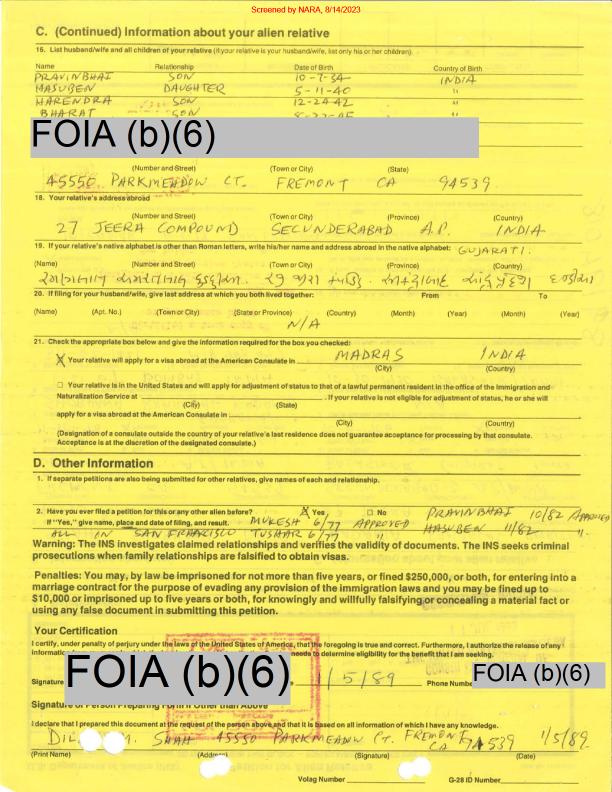 Screened by NARA, 8/14/2023
C. (Continued) Information about your alien relative
16. List husband/wife and all children of your relative (if your relative is your husband/wife, list only his or her children).
Name Relationship Date of Birth Country of Birth
PRAVINBHAI SON 10-7-34 INDIA
HASUBEN DAUGHTER 5-11-40 "
HARENDRA SON 12-24-42 "
BHARAT SON "
FOIA (b)(6)
(Number and Street) (Town or City) (State)
45550 PARKMEADOW CT. FREMONT CA 94539
18. Your relative's address abroad
(Number and Street) (Town or City) (Province) (Country)
27 JEERA COMPOUND SECUNDERABAD A.P. INDIA
19. If your relative's native alphabet is other than Roman letters, write his/her name and address abroad in the native alphabet: GUJARATI.
(Name) (Number and Street) (Town or City) (Province) (Country)
20. If filing for your husband/wife, give last address at which you both lived together: From To
(Name) (Apt. No.) (Town or City) (State or Province) (Country) (Month) (Year) (Month) (Year)
N/A
21. Check the appropriate box below and give the information required for the box you checked:
X Your relative will apply for a visa abroad at the American Consulate in MADRAS INDIA
(City) (Country)
☐ Your relative is in the United States and will apply for adjustment of status to that of a lawful permanent resident in the office of the Immigration and
Naturalization Service at . If your relative is not eligible for adjustment of status, he or she will
(City) (State)
apply for a visa abroad at the American Consulate in
(City) (Country)
(Designation of a consulate outside the country of your relative's last residence does not guarantee acceptance for processing by that consulate.
Acceptance is at the discretion of the designated consulate.)
D. Other Information
1. If separate petitions are also being submitted for other relatives, give names of each and relationship.
2. Have you ever filed a petition for this or any other alien before? X Yes ☐ No PRAVINBHAI 10/82 APPROVED
If "Yes," give name, place and date of filing, and result. MUKESH 6/77 APPROVED HASUBEN 11/82 "
ALL IN SAN FRANCISCO TUSHAR 6/77 "
Warning: The INS investigates claimed relationships and verifies the validity of documents. The INS seeks criminal
prosecutions when family relationships are falsified to obtain visas.
Penalties: You may, by law be imprisoned for not more than five years, or fined $250,000, or both, for entering into a
marriage contract for the purpose of evading any provision of the immigration laws and you may be fined up to
$10,000 or imprisoned up to five years or both, for knowingly and willfully falsifying or concealing a material fact or
using any false document in submitting this petition.
Your Certification
I certify, under penalty of perjury under the laws of the United States of America, that the foregoing is true and correct. Furthermore, I authorize the release of any
needs to determine eligibility for the benefit that I am seeking.
FOIA (b)(6)
Signature 1/5/89 Phone Number FOIA (b)(6)
Signature of Person Preparing Form if Other than Above
I declare that I prepared this document at the request of the person above and that it is based on all information of which I have any knowledge.
M. SHAH 45550 PARKMEADW CT. FREMONT CA 94539 1/5/89.
(Print Name) (Address) (Signature) (Date)
Volag Number G-28 ID Number